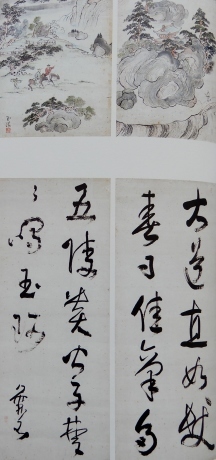 大道直如髮
春日佳氣多
五陵貴公子雙
々鳴玉珂